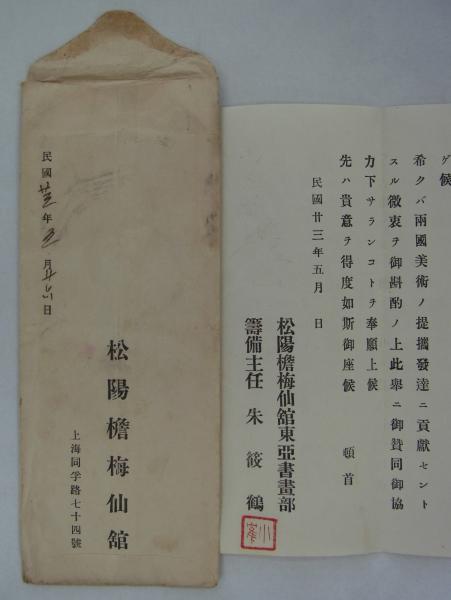 民國廿三年五月廿六日
松陽檐梅仙舘
上海同孚路七十四號
ゲ候
希クバ兩國美術ノ提攜發達ニ貢獻セント
スル微衷ヲ御斟酌ノ上此擧ニ御贊同御協
力下サランコトヲ奉願上候
先ハ貴意ヲ得度如斯御座候 頓首
民國廿三年五月 日
松陽檐梅仙舘東亞書畫部
籌備主任 朱筱鶴